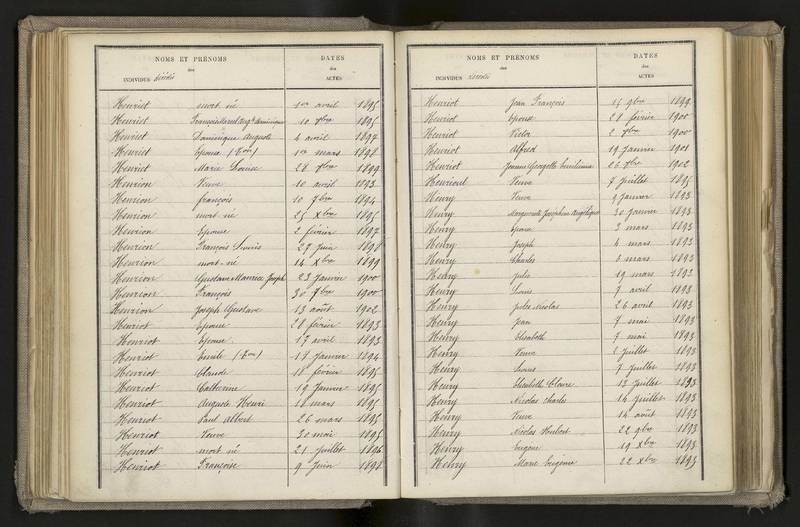 NOMS ET PRÉNOMS
des
INDIVIDUS décédés
DATES
des
ACTES
Henriot mort né 1er avril 1895
Henriot 10 7bre 1895
Henriot Dominique Auguste 4 avril 1897
Henriot Epouse 1er mars 1898
Henriot Marie Louise 28 1899
Henrion Veuve 10 avril 1893
Henrion françois 10 7bre 1894
Henrion mort né 25 Xbre 1895
Henrion Epouse 2 février 1897
Henrion François Louis 27 Juin 1898
Henrion mort-né 14 Xbre 1899
Henrion Gustave Maurice Joseph 23 Janvier 1900
Henrion François 30 7bre 1900
Henrion Joseph Gustave 13 août 1902
Henriot Epouse 28 février 1893
Henriot Epouse 17 avril 1893
Henriot Emile 17 Janvier 1894
Henriot Claude 18 février 1895
Henriot Catherine 19 Janvier 1895
Henriot Auguste Henri 18 mars 1895
Henriot Paul Albert 26 mars 1895
Henriot Veuve 30 mai 1895
Henriot mort né 21 Juillet 1896
Henriot Françoise 9 Juin 1898
NOMS ET PRÉNOMS
des
INDIVIDUS décédés
DATES
des
ACTES
Henriot Jean François 15 9bre 1899
Henriot Epouse 21 février 1900
Henriot Victor 2 7bre 1900
Henriot Alfred 19 Janvier 1901
Henriot Jeanne Georgette 26 7bre 1902
Henrioul Veuve 7 Juillet 1895
Henry Veuve 9 Janvier 1893
Henry Marguerite Joséphine Angélique 30 Janvier 1893
Henry Epouse 3 mars 1893
Henry Joseph 4 mars 1893
Henry Charles 6 mars 1893
Henry Jules 19 mars 1893
Henry Louis 7 avril 1893
Henry Jules Nicolas 26 avril 1893
Henry Jean 7 mai 1893
Henry Elisabeth 7 mai 1893
Henry Veuve Juillet 1893
Henry Louis 7 Juillet 1893
Henry Elisabeth Claire 13 Juillet 1893
Henry Nicolas Charles 16 Juillet 1893
Henry Veuve 14 août 1893
Henry Nicolas Hubert 22 9bre 1893
Henry Eugène 19 Xbre 1893
Henry Marie Eugénie 22 Xbre 1893